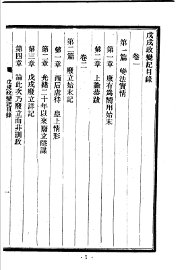 戊戌政變記目錄
卷一
第一篇 變法實情
第一章 康有爲嚮用始末
第二章 上諭恭跋
卷二
第二篇 廢立始末記
第一章 西后虐待 皇上情形
第二章 光緒二十年以來廢立隱謀
第三章 戊戌廢立詳記
第四章 論此次乃廢立而非訓政
戊戌政變記目錄
- 1 -